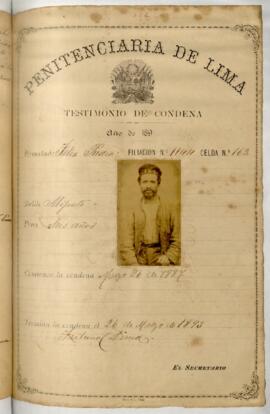 PENITENCIARIA DE LIMA
TESTIMONIO DE CONDENA
Año de 189
Rematado Félix FILIACION N.° 1144 CELDA N.° 163
Delito
Pena Seis años
Comienza la condena Marzo 26 de 1887
Termina la condena el 26 de Marzo de 1893
EL SECRETARIO